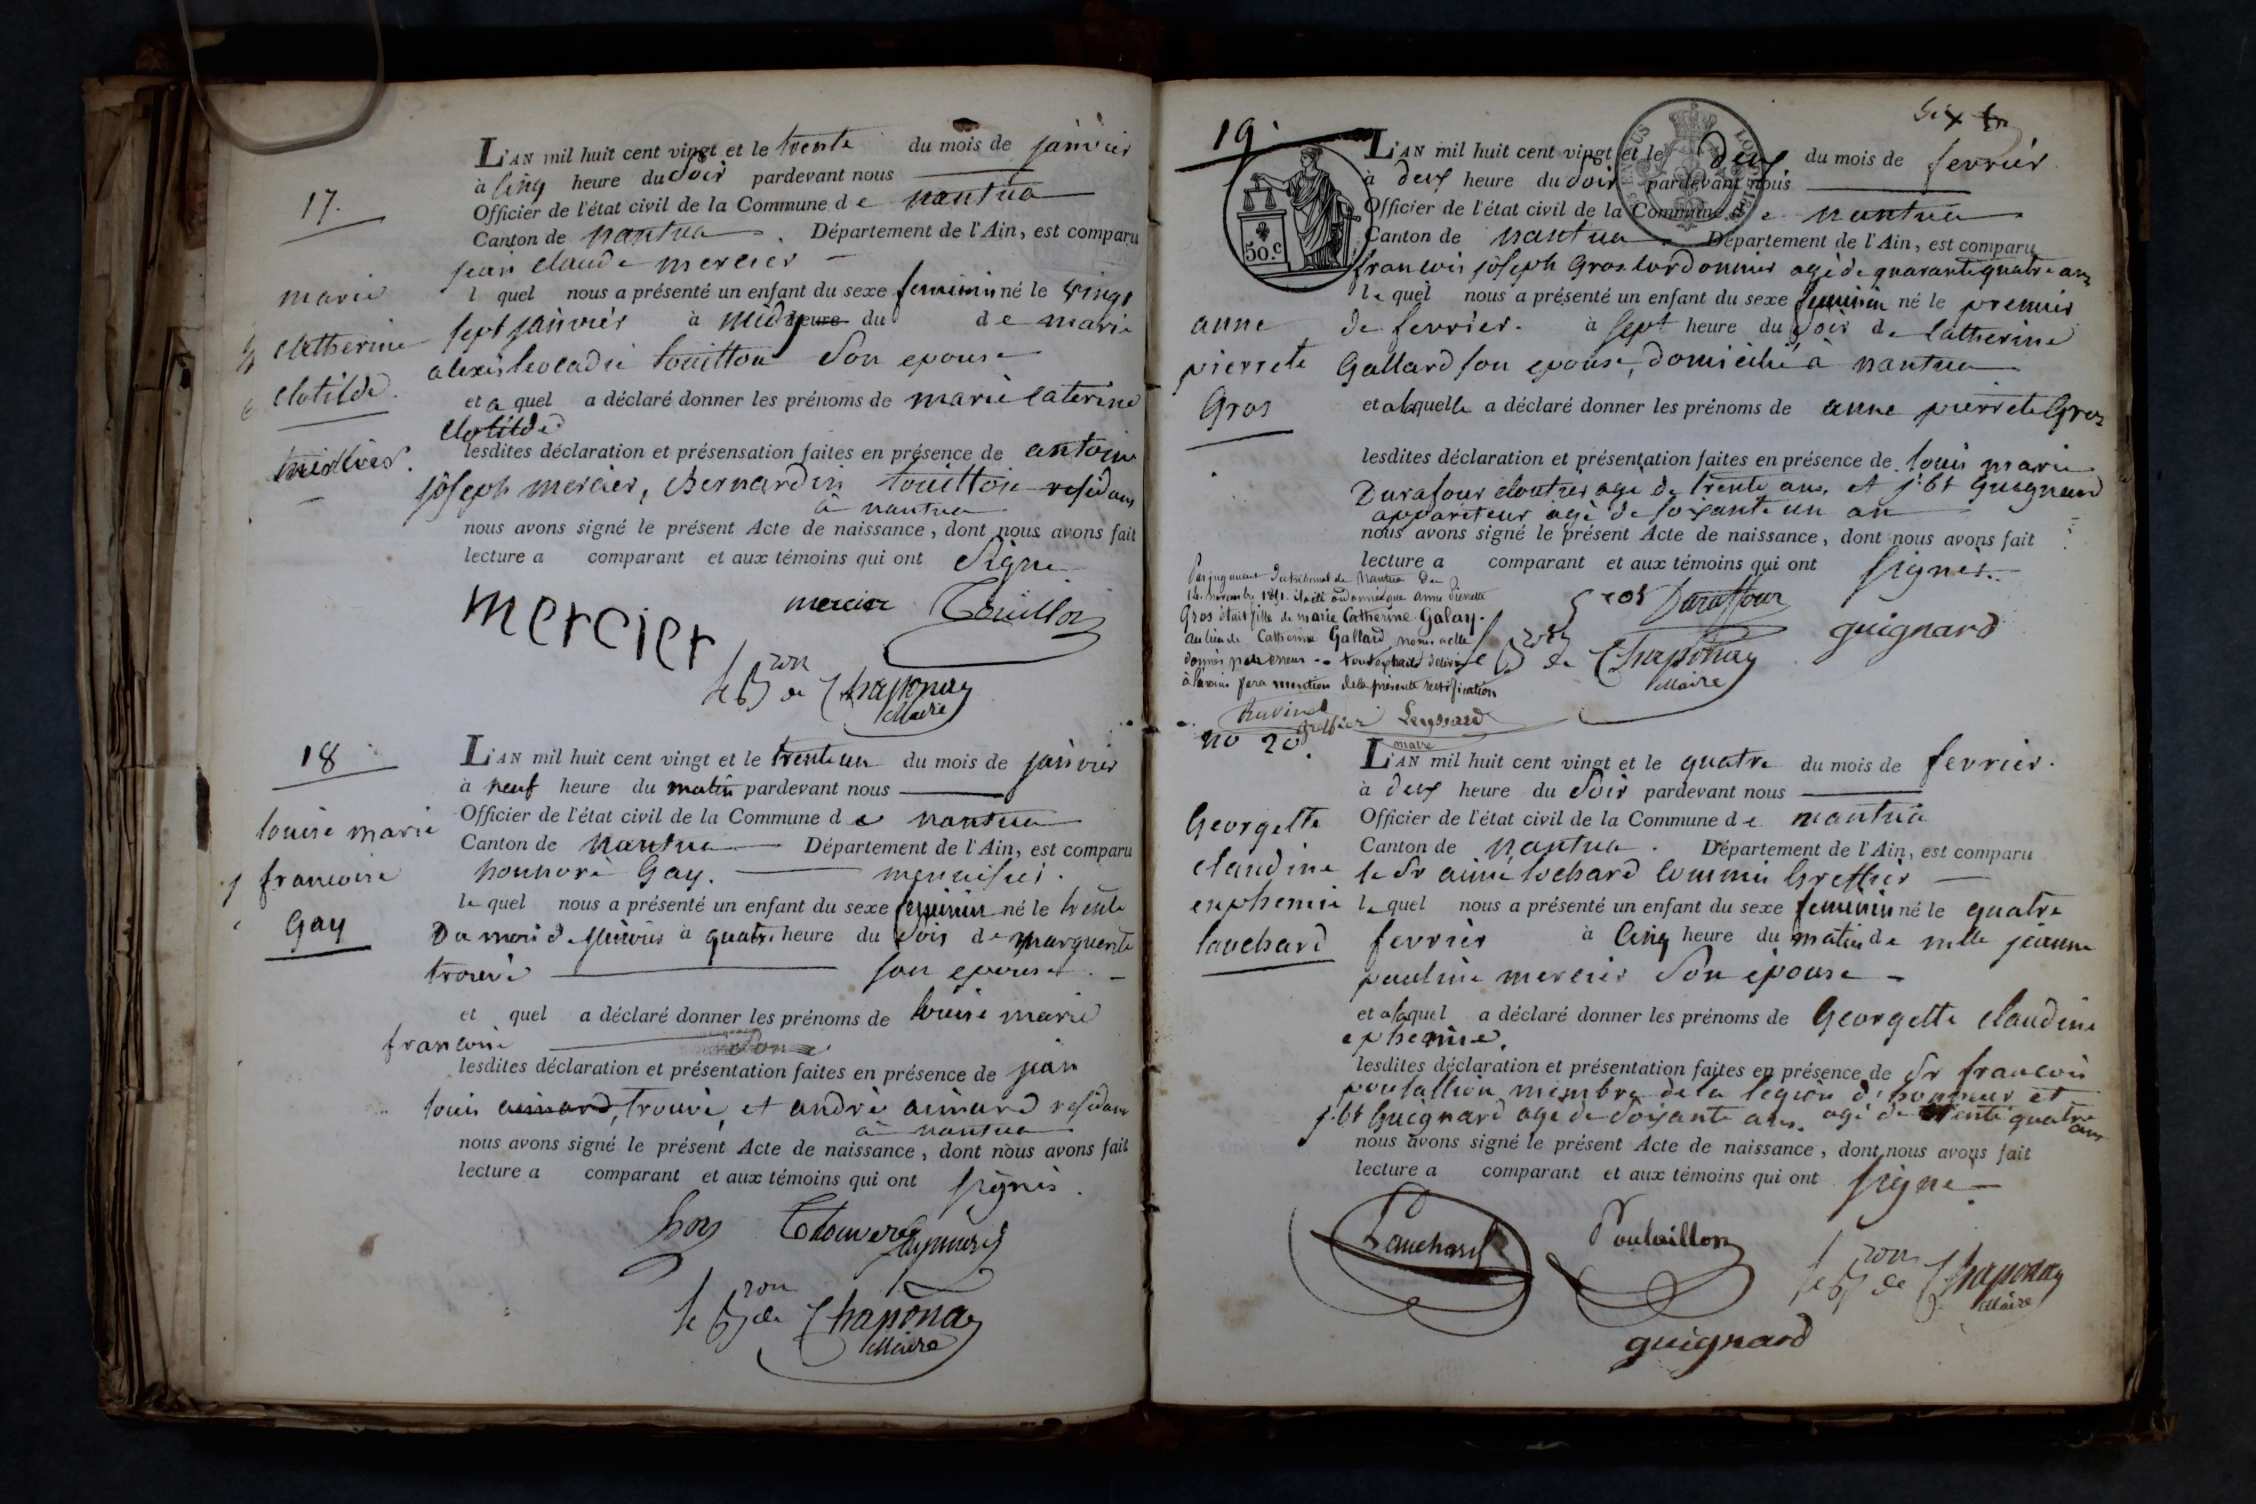 17.
marie
Catherine
Clotilde.
mercier.
L'AN mil huit cent vingt et le trente du mois de janvier
à cinq heure du soir pardevant nous
Officier de l'état civil de la Commune de nantua
Canton de nantua. Département de l'Ain, est comparu
jean claude mercier
l quel nous a présenté un enfant du sexe feminin né le vingt
sept janvier à midy heure du de marie
alexis leocadie touillon son epouse
et a quel a déclaré donner les prénoms de marie caterine
Clotilde
lesdites déclaration et présensation faites en présence de antoine
joseph mercier, Bernardin touillon residans
à nantua
nous avons signé le présent Acte de naissance, dont nous avons fait
lecture a comparant et aux témoins qui ont signé
mercier mercier Touillon
le Bon de Chaponay
Maire
18
louise marie
francoise
Gay
L'AN mil huit cent vingt et le trente un du mois de janvier
à neuf heure du matin pardevant nous
Officier de l'état civil de la Commune de nantua
Canton de nantua Département de l'Ain, est comparu
honnoré Gay. menuisier.
le quel nous a présenté un enfant du sexe feminin né le trente
Du mois de janvier à quatre heure du soir de marguerite
trouvé son epouse.
et quel a déclaré donner les prénoms de louise marie
francoise
lesdites déclaration et présentation faites en présence de jean
louis aimard, trouvé, et andré aimard residans
à nantua
nous avons signé le présent Acte de naissance, dont nous avons fait
lecture a comparant et aux témoins qui ont signés.
le Bon de Chaponay
Maire
six
19.
50.C
anne
pierrete
Gros
L'AN mil huit cent vingt et le deux du mois de fevrier
à deux heure du soir pardevant nous
Officier de l'état civil de la Commune de nantua
Canton de nantua. Département de l'Ain, est comparu
francois joseph Gros cordonnier agé de quarante quatre ans
le quel nous a présenté un enfant du sexe feminin né le premier
de fevrier. à sept heure du soir de Catherine
Gallard son epouse, domicilié à nantua
et alaquelle a déclaré donner les prénoms de anne pierrete Gros
lesdites déclaration et présentation faites en présence de louis marie
Durafour cloutier agé de trente ans, et j.bt Guignard
appariteur agé de soixante un an
nous avons signé le présent Acte de naissance, dont nous avons fait
lecture a comparant et aux témoins qui ont signés.
Par jugement du tribunal de Nantua du
14 novembre 1891. il a été ordonné que anne Pierrette
Gros était fille de marie Catherine Galay.
au lieu de Catherine Gallard, noms a elle
donnés par erreur
fera mention de la présente rectification
greffier
maire
Gros Duraffour
guignard
le Bon de Chaponay
Maire
no 20.
Georgette
claudine
euphemie
lauchard
L'AN mil huit cent vingt et le quatre du mois de fevrier.
à deux heure du soir pardevant nous
Officier de l'état civil de la Commune de nantua
Canton de nantua. Département de l'Ain, est comparu
le Sr aimé lochard Commis Greffier
le quel nous a présenté un enfant du sexe feminin né le quatre
fevrier à cinq heure du matin de mlle jeanne
pauline mercier son épouse
et alaquel a déclaré donner les prénoms de Georgette claudine
ephemie.
lesdites déclaration et présentation faites en présence de Sr francois
poutallion membre de la legion d'honneur et
j.bt Guignard agé de soixante ans. agé de trente quatre
ans
nous avons signé le présent Acte de naissance, dont nous avons fait
lecture a comparant et aux témoins qui ont signé
Lauchard Poutaillon
le Bon de Chaponay
Maire
guignard